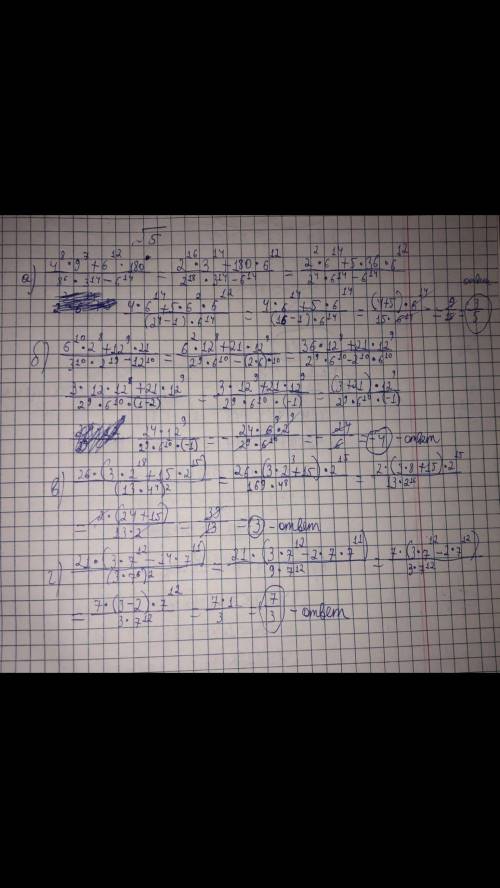 √5
а) (4^8·9^7+6^12·180)/(8^6·3^14−6^14) = (2^16·3^14+180·6^12)/(2^18·3^14−6^14) = (2^2·6^14+5·36·6^12)/(2^4·6^14−6^14)
(4·6^14+5·6^2·6^12)/((2^4−1)·6^14) = (4·6^14+5·6^14)/((16−1)·6^14) = ((4+5)·6^14)/(15·6^14) = 9/15 = 3/5 ответ
б) (6^10·2^8+12^9·21)/(3^10·2^19−12^10) = (6^2·12^8+21·12^9)/(2^9·6^10−(2·6)^10) = (36·12^8+21·12^9)/(2^9·6^10−2^10·6^10)
(3·12·12^8+21·12^9)/(2^9·6^10·(1−2)) = (3·12^9+21·12^9)/(2^9·6^10·(−1)) = ((3+21)·12^9)/(2^9·6^10·(−1))
(24·12^9)/(2^9·6^10·(−1)) = −(24·6^9·2^9)/(2^9·6^10) = −24/6 = −4 − ответ
в) (26·(3·2^18+15·2^15))/((13·4^4)^2) = (26·(3·2^3+15)·2^15)/(169·4^8) = (2·(3·8+15)·2^15)/(13·2^16)
= (2·(24+15))/(13·2) = 39/13 = 3 − ответ
г) (21·(3·7^12−14·7^11))/((3·7^6)^2) = (21·(3·7^12−2·7·7^11))/(9·7^12) = (7·(3·7^12−2·7^12))/(3·7^12)
= (7·(3−2)·7^12)/(3·7^12) = (7·1)/3 = 7/3 − ответ